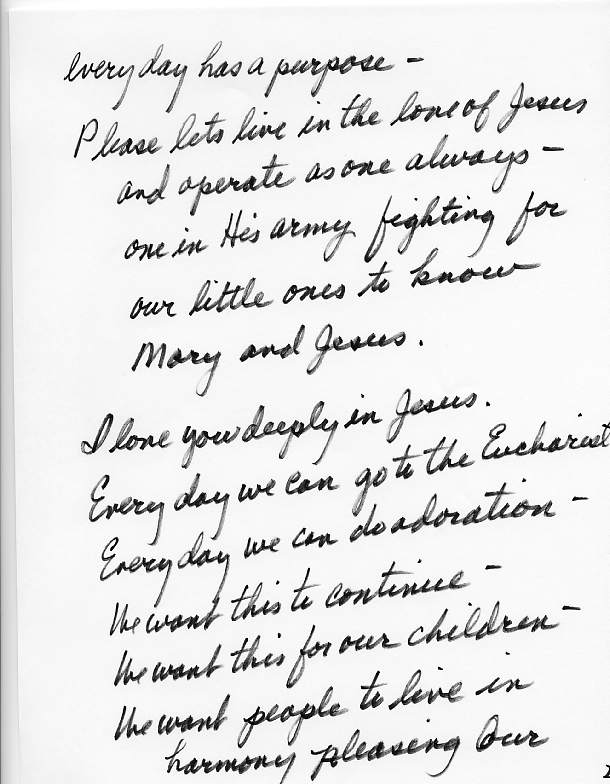 every day has a purpose –
Please lets live in the love of Jesus
and operate as one always –
one in His army fighting for
our little ones to know
Mary and Jesus.
I love you deeply in Jesus.
Every day we can go to the Eucharist
Every day we can do adoration –
We want this to continue –
We want this for our children –
We want people to live in
harmony pleasing Our